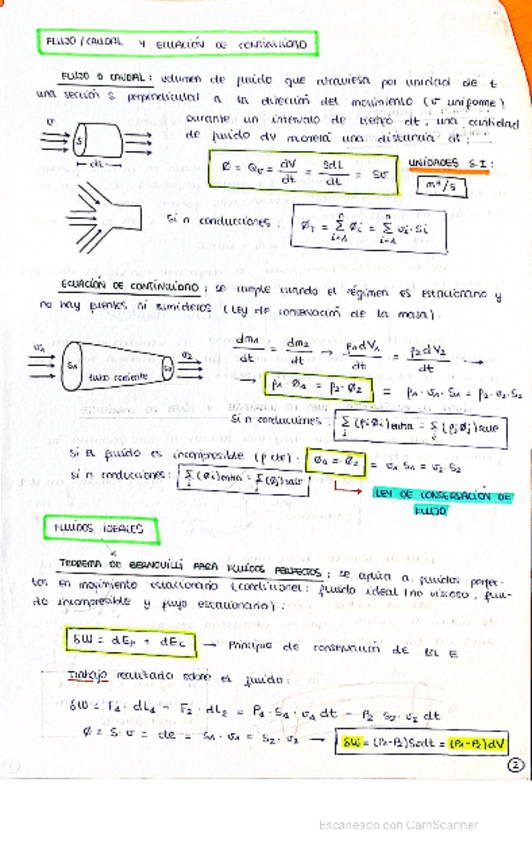 FLUJO/CAUDAL Y ECUACIÓN DE CONTINUIDAD
FLUJO O CAUDAL: volumen de fluido que atraviesa por unidad de t
una sección S perpendicular a la dirección del movimiento (v uniforme)
durante un intervalo de tiempo dt, una cantidad
de fluido dV moverá una distancia dL:
v
S
dL
Ø = Qv = dV/dt = SdL/dt = Sv
UNIDADES S.I:
m³/s
Si n conducciones: ØT = Σ Øi = Σ vi·Si
ECUACIÓN DE CONTINUIDAD: se cumple cuando el régimen es estacionario y
no hay fuentes ni sumideros (Ley de conservación de la masa).
v1 S1 tubo corriente S2 v2
dm1/dt = dm2/dt → ρ1dV1/dt = ρ2dV2/dt →
→ ρ1·Ø1 = ρ2·Ø2 = ρ1·v1·S1 = ρ2·v2·S2
Si n conducciones: Σ(ρiØi)entra = Σ(ρjØj)sale
si el fluido es incompresible (ρ cte): Ø1 = Ø2 = v1 S1 = v2·S2
si n conducciones: Σ(Øi)entra = Σ(Øj)sale
LEY DE CONSERVACIÓN DE
FLUJO
FLUIDOS IDEALES
TEOREMA DE BERNOUILLI PARA FLUIDOS PERFECTOS: se aplica a fluidos perfec-
tos en movimiento estacionario (condiciones: fluido ideal (no viscoso, flui-
do incompresible y flujo estacionario).
δW = dEp + dEc → Principio de conservación de la E
Trabajo realizado sobre el fluido:
δW = F1·dL1 - F2·dL2 = P1·S1·v1 dt - P2 S2·v2 dt
Ø = S·v = cte = S1·v1 = S2·v2 → δW = (P1-P2)Svdt = (P1-P2)dV
2
Escaneado con CamScanner